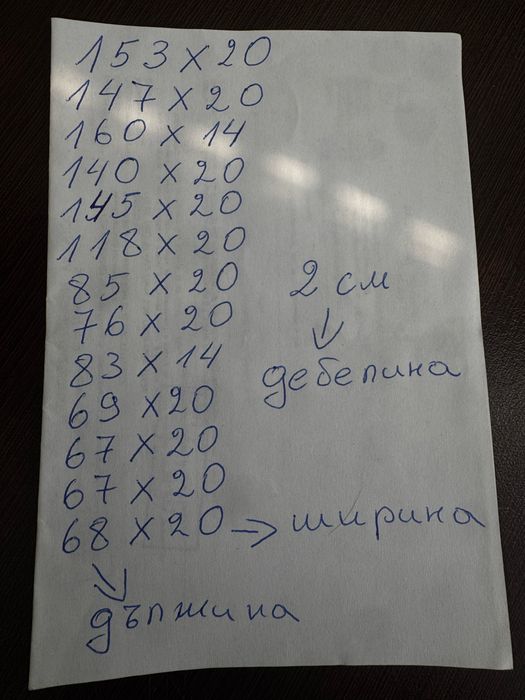 153 x 20
147 x 20
160 x 14
140 x 20
145 x 20
118 x 20
85 x 20
76 x 20
83 x 14
69 x 20
67 x 20
67 x 20
68 x 20 → ширина
↓
дължина
2 см
↓
дебелина